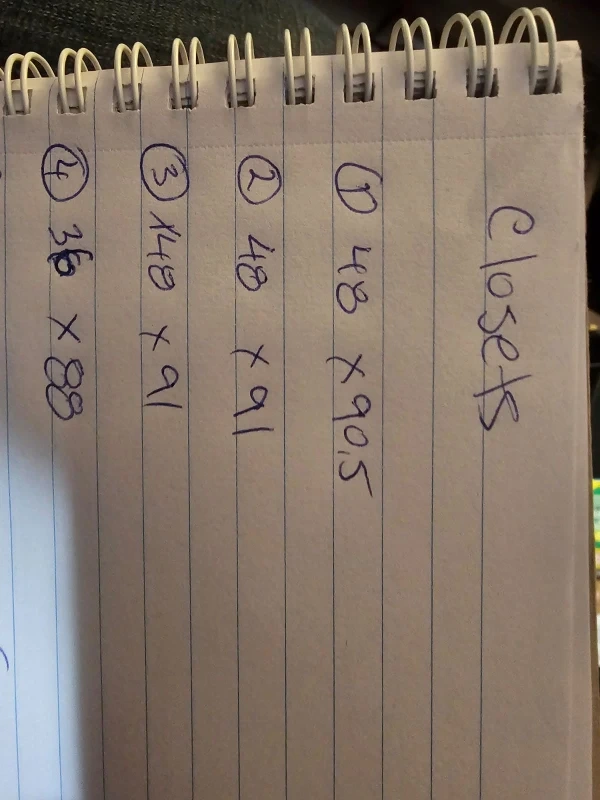 Closets
① 48 x 90.5
② 48 x 91
③ 148 x 91
④ 36 x 88